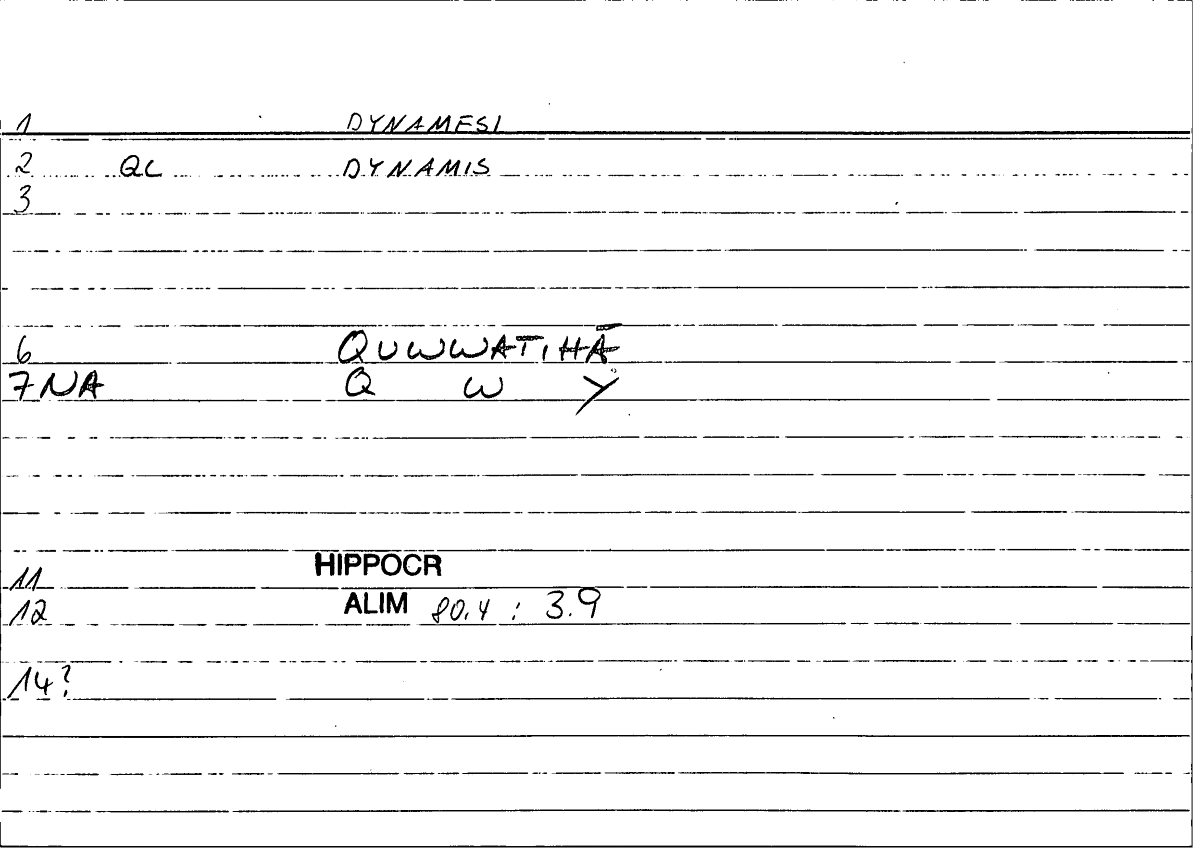 1 DYNAMESI
2 QC DYNAMIS
3
6 QUWWATIHĀ
7 NA Q W Y
11 HIPPOCR
12 ALIM 80.4 : 3.9
14?